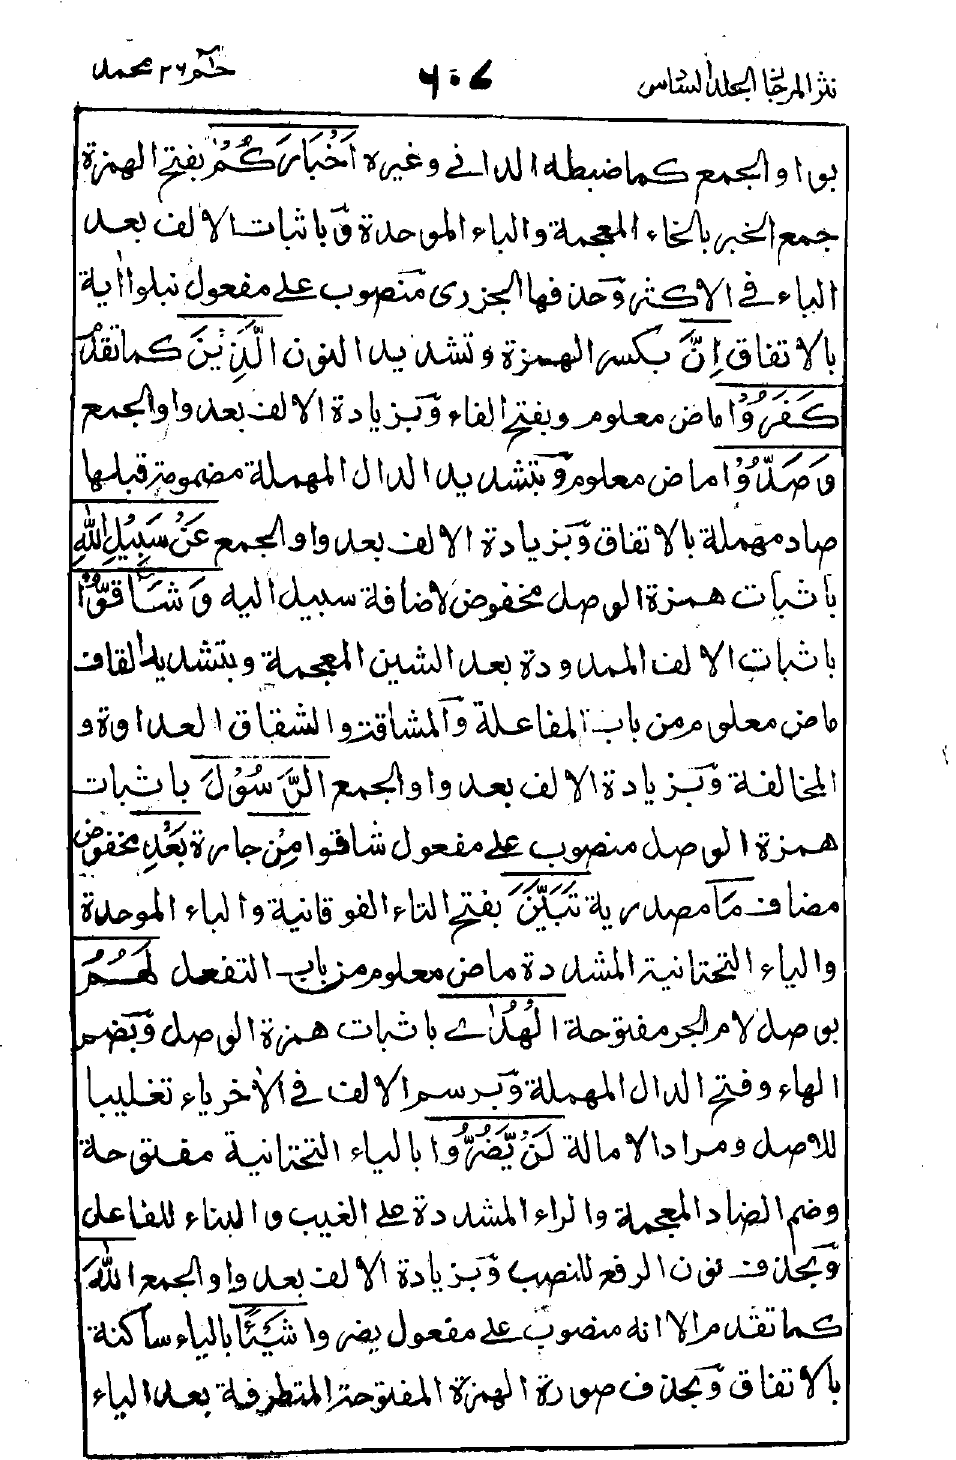 نثر المرجان المجلد السادس ٦٠٧ حٰم ٢٦ محمد
بواو الجمع كما ضبطه الداني وغيره اَخْبَارَكُمْ بفتح الهمزة
جمع الخبر بالخاء المعجمة والباء الموحدة وَباثبات الالف بعد
الباء في الاكثر وَحذفها الجزري منصوب على مفعول نبلوا اية
بالاتفاق اِنَّ بكسر الهمزة وتشديد النون الَّذِيْنَ كما تقدم
كَفَرُوْا ماض معلوم وبفتح الفاء وَبزيادة الالف بعد واو الجمع
وَصَدُّوْا ماض معلوم وَبتشديد الدال المهملة مضمومة قبلها
صاد مهملة بالاتفاق وَبزيادة الالف بعد واو الجمع عَنْ سَبِيْلِ اللّٰهِ
باثبات همزة الوصل مخفوض لاضافة سبيل اليه وَشَاقُّوْا
باثبات الالف الممدودة بعد الشين المعجمة وبتشديد القاف
ماض معلوم من باب المفاعلة وَالمشاقة والشقاق العداوة و
المخالفة وَبزيادة الالف بعد واو الجمع الرَّسُوْلَ باثبات
همزة الوصل منصوب على مفعول شاقوا مِنْ جارة بَعْدِ مخفوض
مضاف مَا مصدرية تَبَيَّنَ بفتح التاء الفوقانية والباء الموحدة
والياء التحتانية المشددة ماض معلوم من باب التفعل لَهُمُ
بوصل لام الجر مفتوحة الْهُدٰى باثبات همزة الوصل وَبضم
الهاء وفتح الدال المهملة وَبرسم الالف في الاخر ياء تغليبا
للاصل ومراد الامالة لَنْ يَّضُرُّوا بالياء التحتانية مفتوحة
وضم الضاد المعجمة والراء المشددة على الغيب والبناء للفاعل
وَبحذف نون الرفع للنصب وَبزيادة الالف بعد واو الجمع اللّٰهَ
كما تقدم الا انه منصوب على مفعول يضروا شَيْـًٔا بالياء ساكنة
بالاتفاق وَبحذف صورة الهمزة المفتوحة المتطرفة بعد الياء